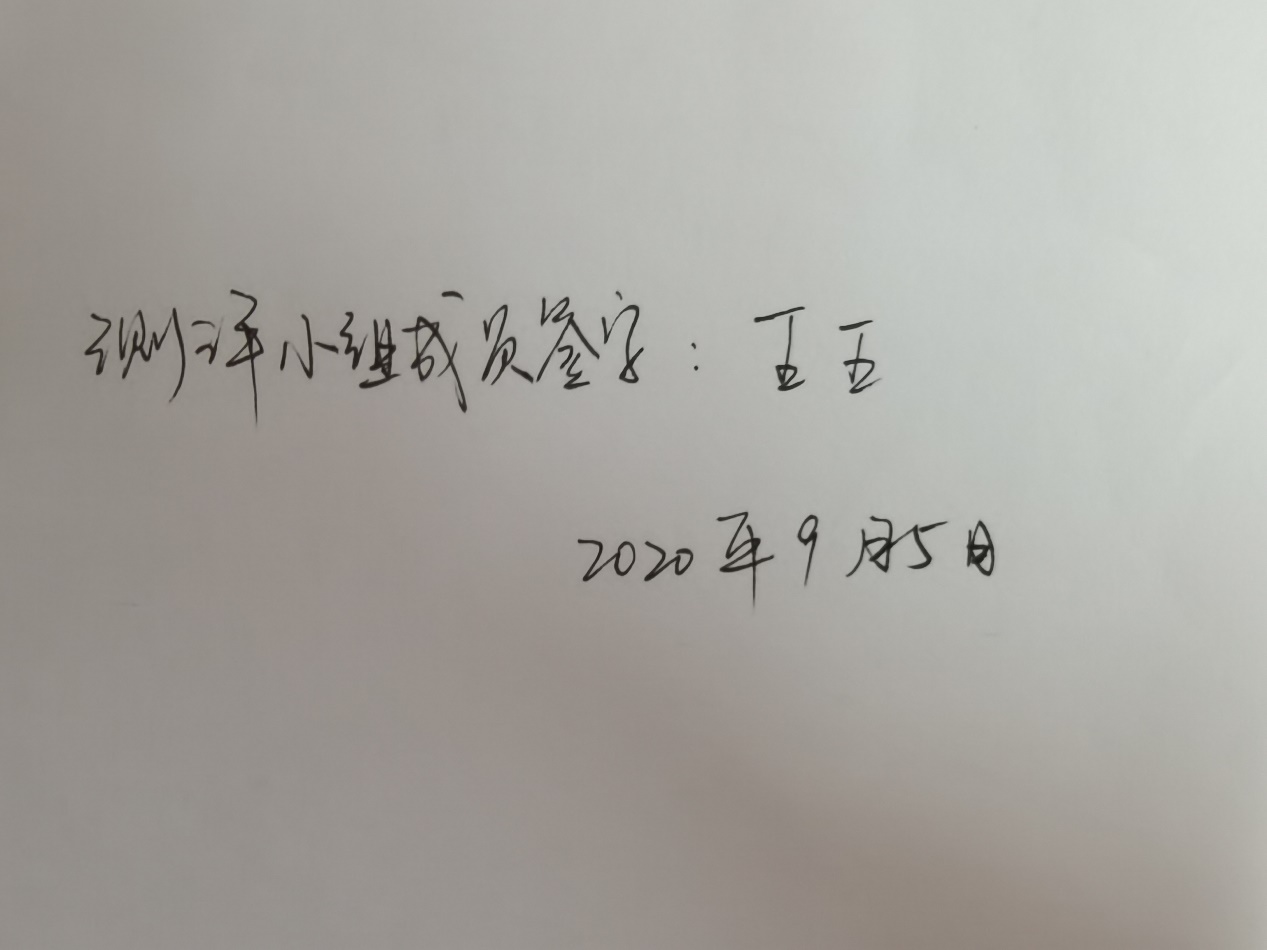 测评小组成员签字：王五
2020年9月5日